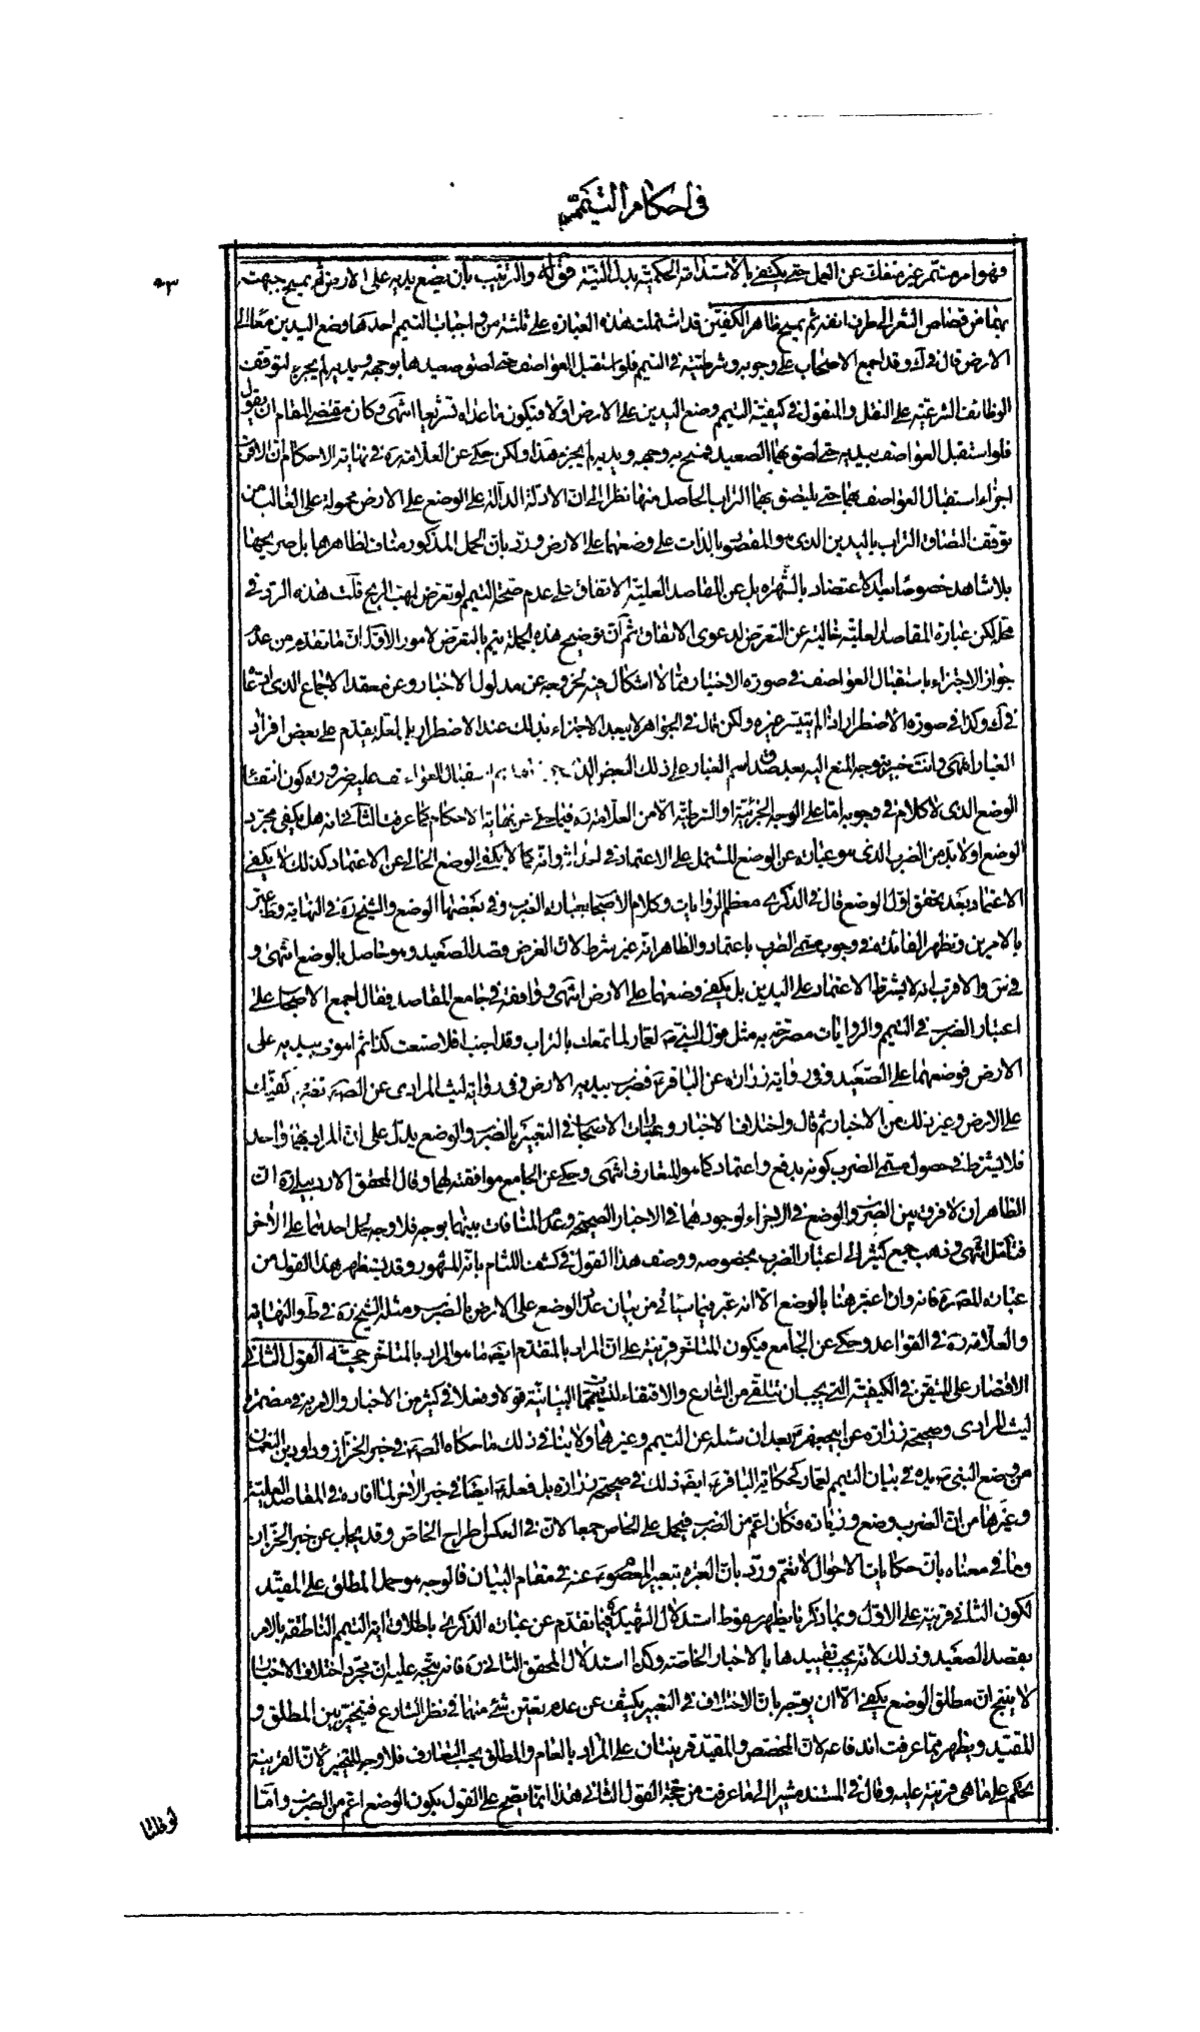 في احكام التيمم
٩٣
فهو امر مستمر غير منفك عن العمل حتى يكتفى بالاستدامة الحكمية بدل النية قوله والترتيب بان يضع يديه على الارض ثم يمسح جبهته
بهما من قصاص الشعر الى طرف انفه ثم يمسح ظاهر الكفين قد اشتملت هذه العبارة على ثلثة من واجبات التيمم احدها وضع اليدين معا على
الارض قال في ك وقد اجمع الاصحاب على وجوبه وشرطيته في التيمم فلو استقبل العواصف حتى لصق صعيدها بوجهه ويديه لم يجزه لتوقف
الوظائف الشرعية على النقل والمنقول في كيفية التيمم وضع اليدين على الارض اولا فيكون ما عداه تشريعا انتهى وكان مقتضى المقام ان يقول
فلو استقبل العواصف بيديه حتى لصق بهما الصعيد فمسح به وجهه ويديه لم يجزه هذا ولكن حكى عن العلامة ره في نهاية الاحكام ان الاقرب
اجزاء استقبال العواصف بهما حتى يلتصق بهما التراب الحاصل منها نظرا الى ان الادلة الدالة على الوضع على الارض محمولة على الغالب من
توقف التصاق التراب باليدين الذي هو المقصود بالذات على وضعهما على الارض ورد بان الحمل المذكور مناف لظاهرها بل صريحها
بلا شاهد خصوصا بعد الاعتضاد بالشهرة بل عن المقاصد العلية الاتفاق على عدم صحة التيمم لو تعرض لمهب الريح قلت هذه الرد في
محله لكن عبارة المقاصد العلية خالية عن التعرض لدعوى الاتفاق ثم ان توضيح هذه الجملة يتم بالتعرض لامور الاول ان ما تقدم من عدم
جواز الاجتزاء باستقبال العواصف في صورة الاختيار مما لا اشكال فيه لخروجه عن مدلول الاخبار وعن معقد الاجماع الذي ادعاه
في ك وكذا في صورة الاضطرار اذا لم يتيسر غيره ولكن قال في الجواهر لا يبعد الاجتزاء بذلك عند الاضطرار بل لعله يقدم على بعض افراد
الغبار انتهى وانت خبير بتوجه المنع اليه بعد صدق اسم الغبار على ذلك البعض استقبال العواصف عليه ضرورة كون انتفاء
الوضع الذي لا كلام في وجوبه اما على الوجه الجزئية او الشرطية الا من العلامة ره فيما حكى عن نهاية الاحكام كما عرفت الثاني انه هل يكفى مجرد
الوضع او لا بد من الضرب الذي هو عبارة عن الوضع المشتمل على الاعتماد في احداثه وانه كما لا يكفى الوضع الخالي عن الاعتماد كذلك لا يكفى
الاعتماد بعد تحقق اول الوضع قال في الذكرى معظم الروايات وكلام الاصحاب بعبارة الضرب وفي بعضها الوضع والشيخ ره في النهاية وط عبر
بالامرين وتظهر الفائدة في وجوب مسمى الضرب باعتماد والظاهر انه غير شرط لان الغرض قصد الصعيد وهو حاصل بالوضع انتهى و
في س والاقرب انه لا يشترط الاعتماد على اليدين بل يكفى وضعهما على الارض انتهى ووافقه في جامع المقاصد فقال اجمع الاصحاب على
اعتبار الضرب في التيمم والروايات مصرحة به مثل قول النبي ص لعمار لما تمعك بالتراب وقد اجنب افلا صنعت كذا ثم اهوى بيديه على
الارض فوضعهما على الصعيد وفي رواية زرارة عن الباقر ع فضرب بيديه الارض وفي رواية ليث المرادي عن الصم تضرب بكفيك
على الارض وغير ذلك من الاخبار ثم قال واختلاف الاخبار وعبارات الاصحاب في التعبير بالضرب والوضع يدل على ان المراد بهما واحد
فلا يشترط في حصول مسمى الضرب كونه بدفع واعتماد كما هو المتعارف انتهى وحكى عن الجامع موافقته لهما وقال المحقق الاردبيلي ره ان
الظاهر ان لا فرق بين الضرب والوضع في الاجزاء لوجودهما في الاخبار الصحيحة وعدم المنافات بينهما بوجه فلا وجه لحمل احدهما على الاخر
فتامل انتهى وذهب جمع كثير الى اعتبار الضرب بخصوصه ووصف هذا القول في كشف اللثام بانه المشهور وقد يستظهر هذا القول من
عبارة المصره فانه وان اعتبر هنا بالوضع الا انه عبر فيما سيأتي من بيان عدد الوضع على الارض بالضرب ومثله الشيخ ره في ط والنهاية
والعلامة ره في القواعد وحكى عن الجامع فيكون المتاخر قرينة على ان المراد بالمتقدم ايضا ما هو المراد بالمتاخر حجة القول الثاني
الاقتصار على المتيقن في الكيفية التي يجب ان تتلقى من الشارع والاقتفاء للتيممات البيانية قولا وفعلا في كثير من الاخبار والامر به في مضمرة
ليث المرادي وصحيحة زرارة عن ابيجعفر ع بعد ان سئله عن التيمم وغيرهما ولا ينافي ذلك ما حكاه الصم في خبر الخزاز وداود بن النعمان
من وضع النبي ص يديه في بيان التيمم لعمار كحكاية الباقر ع ايضا ذلك في صحيحة زرارة بل فعله ع ايضا في خبر الاخر لما افاده في المقاصد العلية
وغيرها من ان الضرب وضع وزيادة فكان اعم من الضرب فيحمل على الخاص جمعا لان في العكس اطراح الخاص وقد يجاب عن خبر الخزاز
وما في معناه بان حكايات الاحوال لا تعم ورد بان العبرة بتعبير المعصوم ع عنه في مقام البيان فالوجه هو حمل المطلق على المقيد
لكون الثاني قرينة على الاول وبما ذكرنا يظهر سقوط استدلال الشهيد ره فيما تقدم عن عبارة الذكرى باطلاق اية التيمم الناطقة بالامر
بقصد الصعيد وذلك لانه يجب تقييدها بالاخبار الخاصة وكذا استدلال المحقق الثاني ره فانه يتجه عليه ان مجرد اختلاف الاخبار
لا ينتج ان مطلق الوضع يكفى الا ان يوجه بان الاختلاف في التعبير يكشف عن عدم تعين شئ منهما في نظر الشارع فيتخير بين المطلق و
المقيد ويظهر مما عرفت اندفاعه لان المخصص والمقيد قرينتان على المراد بالعام والمطلق بحسب التعارف فلا وجه للتخيير لان القرينة
يحكم على ما هي قرينة عليه وقال في المستند مشيرا الى ما عرفت من حجة القول الثاني هذا انما يصح على القول بكون الوضع اعم من الضرب واما
لو قلنا